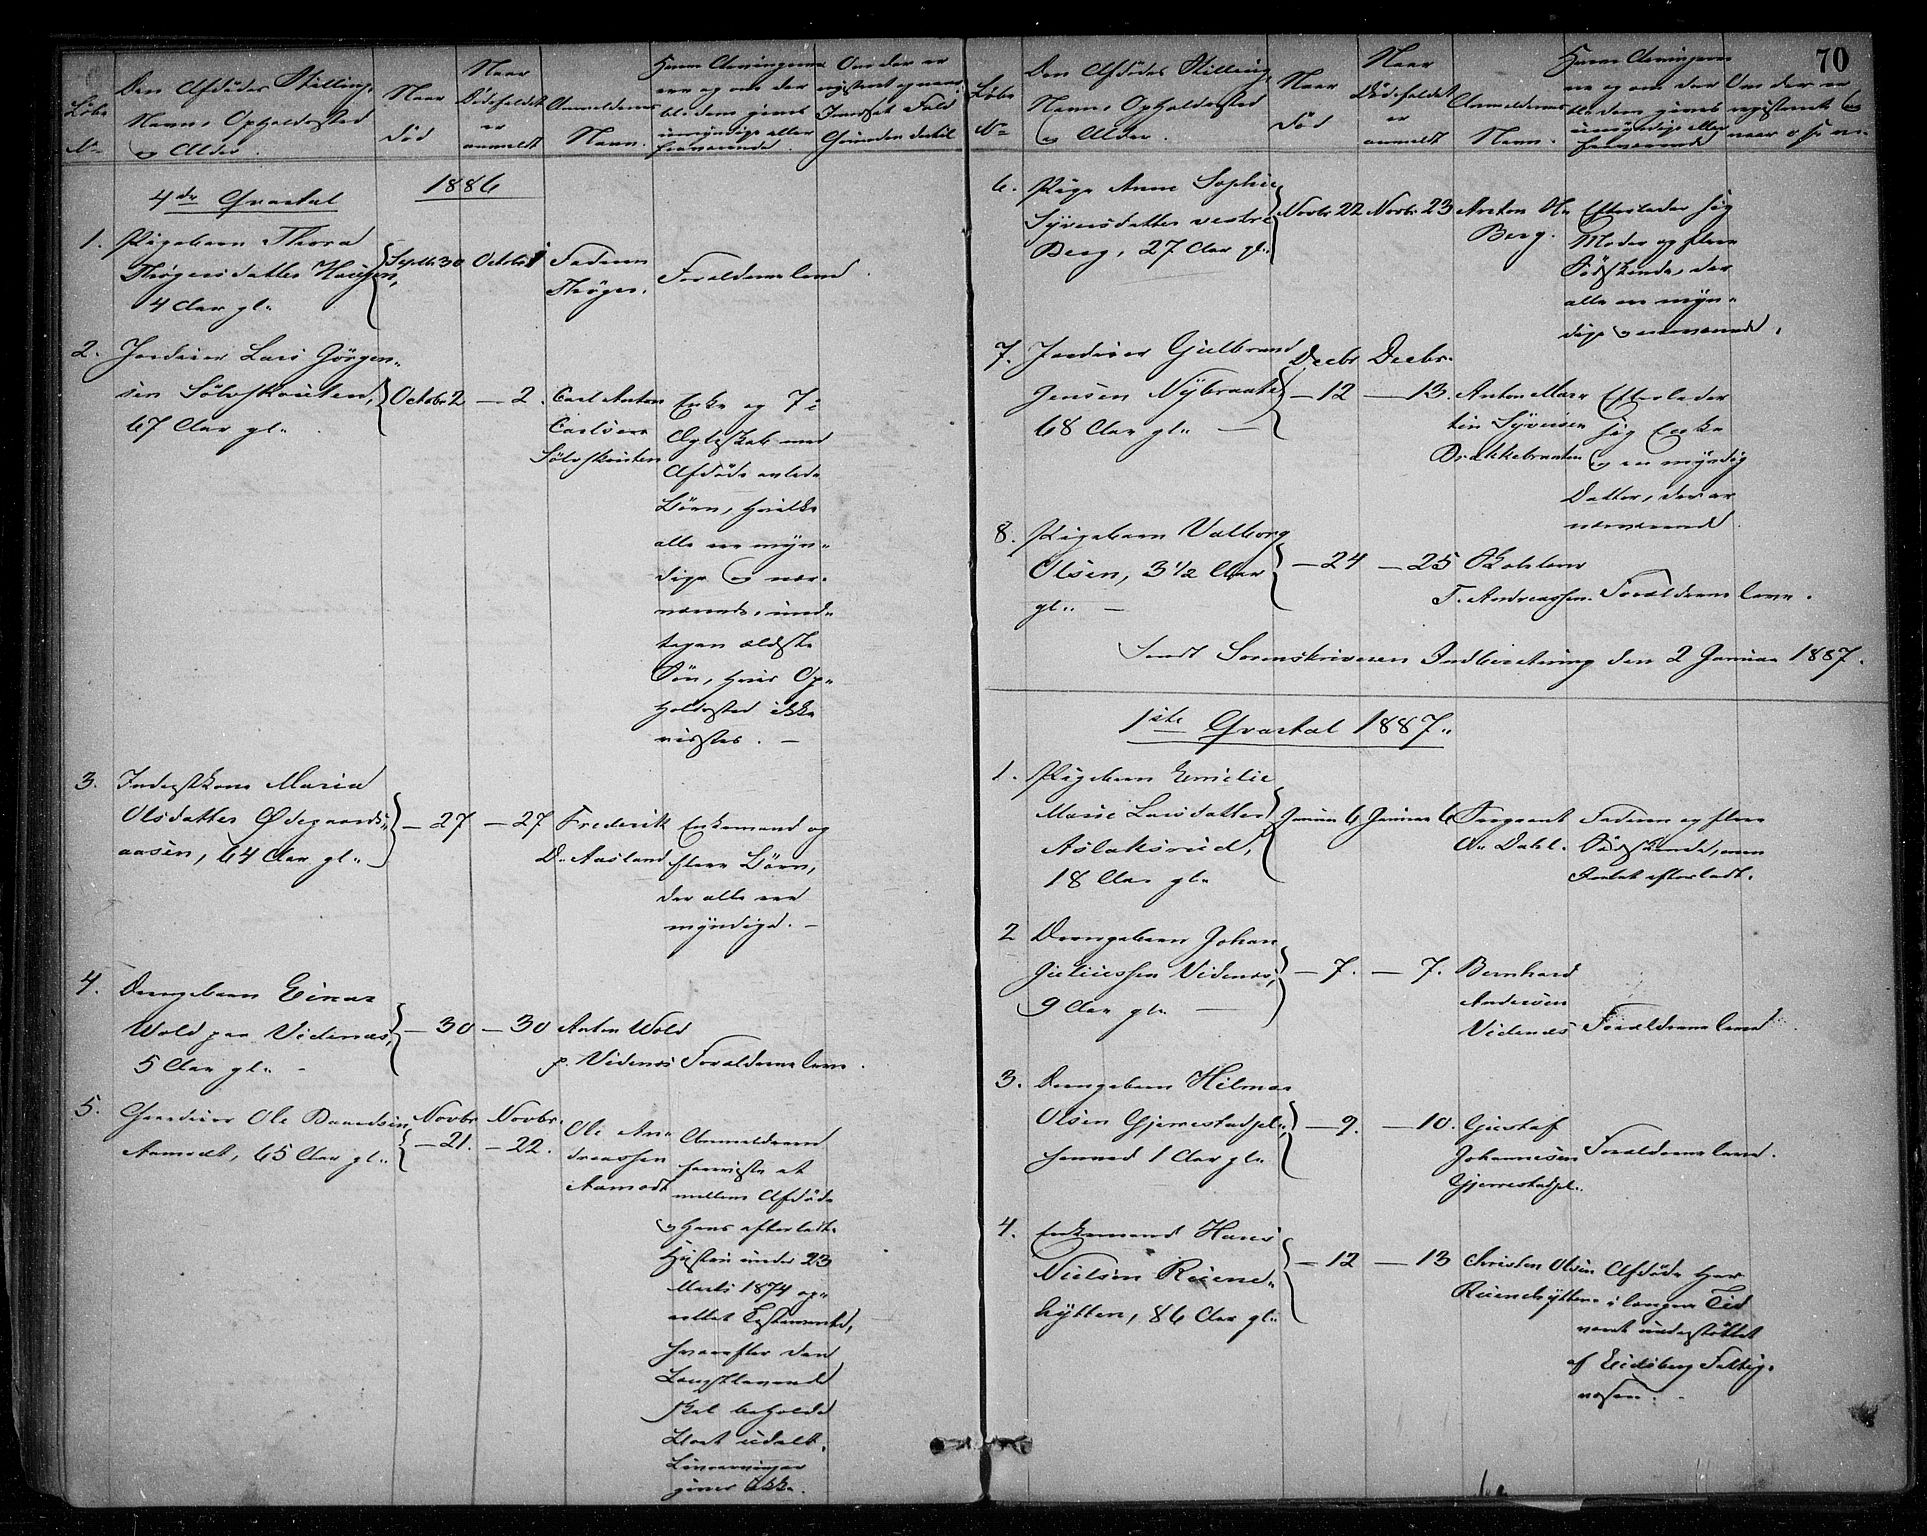 70
Løbe No
Den Afdødes Stilling,
Navn, Opholdssted
og Alder.
Naar
død
Naar
Dødsfaldet
er
anmeldt
Anmelderens
Navn.
Hvem Arvingerne
ere og om der
blandt dem gives
umyndige eller
fraværende.
Om der er
registeret og naar
Grunden dertil
4de Qvartal
1886
1.
Pigebarn Thora
Thøgersdatter Haugen,
4 Aar gl.
Septbr 30
Octobr 1
Faderen
Thøger.
Forældrene leve.
2.
Inderst Lars Jörgen-
sen Sølvskouten,
67 Aar gl.
Octobr 2
— 2.
Carl Anton
Carlsen
Sølvskouten
Enke og 7 i
Ægteskab med
Afdøde avlede
Børn, hvilke
alle ere myn-
dige og nær-
værende, und-
tagen ældste
Søn, hvis Op-
holdssted ikke
vidstes. —
3.
Inderstkone Maria
Olsdatter Ødegaards-
aasen, 64 Aar gl.
— 27
— 27
Frederik
D. Aasland
Enkemand og
flere Børn,
der alle ere
myndige. —
4.
Drengebarn Einar
Wold paa Videnæs,
5 Aar gl. —
— 30
— 30
Anton Wold
p. Videnæs
Forældrene leve.
5.
Gaardeier Ole
Aamodt, 65 Aar gl.
Novbr
— 21.
Novbr.
— 22.
Ole An-
dreassen
Aamodt
Anmelderen
foreviste et
mellem Afdøde
og Hans efterladte
Hustru under 23
Marts 1874 op-
rettet Testamente,
hvorefter den
Længstlevende
skal beholde
Boet udelt.
Livsarvinger
gives ikke.
Løbe No
Den Afdødes Stilling,
Navn, Opholdssted
og Alder.
Naar
død
Naar
Dødsfaldet
er
anmeldt
Anmelderens
Navn.
Hvem Arvingerne
ere og om der
blandt dem gives
umyndige eller
fraværende
Om der er
registeret og
naar o s v.
6.
Pige Anne Sophie
Syversdatter vestre
Berg, 27 Aar gl.
Novbr 22
Novbr. 23
Anton Ols.
Berg.
Efterlader sig
Moder og flere
Sødskende, der
alle ere myn-
dige og nærværende.
7.
Inderst Gulbrand
Jensen Nybraaten
68 Aar gl. —
Decbr
— 12
Decbr.
— 13.
Anton Mar-
tin Syversen
Brækkebraaten
Efterlader
sig Enke
og en myndig
Datter, der er
nærværende
8.
Pigebarn Valborg
Olsen, 3 1/2 Aar
gl. —
— 24
— 25
T. Andreassen.
Forældrene leve.
Sendt Sorenskriveren Indberetning den 2 Januar 1887.
1ste Qvartal 1887.
1.
Pigebarn Emelie
Marie Larsdatter
Aslaksrud,
18 Aar gl.
Januar 6
Januar 6
Sergeant
O. Dahl.
Faderen og flere
Sødskende, men
Intet efterladt.
2
Drengebarn Johan
Juliussen Videnæs,
9 Aar gl. —
— 7.
— 7.
Bernhard
Andersen
Videnæs
Forældrene leve
3.
Drengebarn Hilmar
Olsen Gjerrestadpl.,
henved 1 Aar gl.
— 9.
— 10.
Gustaf
Johannesen
Gjerrestadpl.
Forældrene leve.
4.
Enkemand Hans
Nielsen Reiene-
hytten, 86 Aar gl.
— 12
— 13
Christen Olsen
Reienehytten
Afdøde har
i længere Tid
været understøttet
af Eidsberg Fattig-
væsen. —